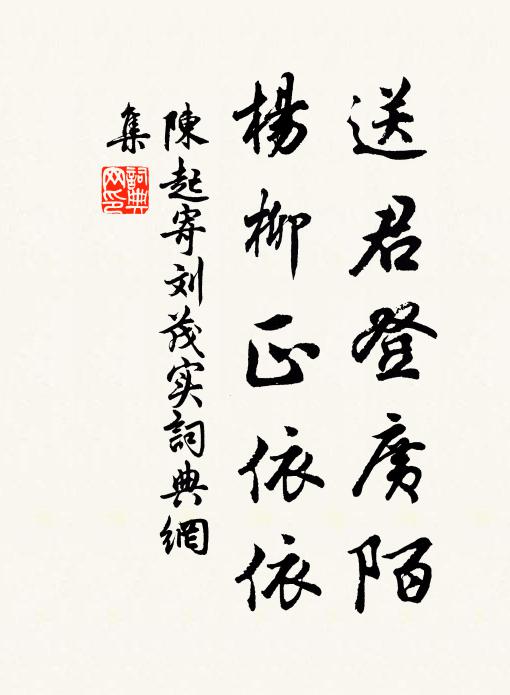 送君登廣陌
楊柳正依依
陳起寄刘茂实詞典網
集
詞典網印